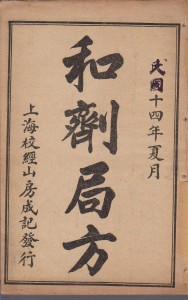 民國十四年夏月
和劑局方
上海校經山房成記發行